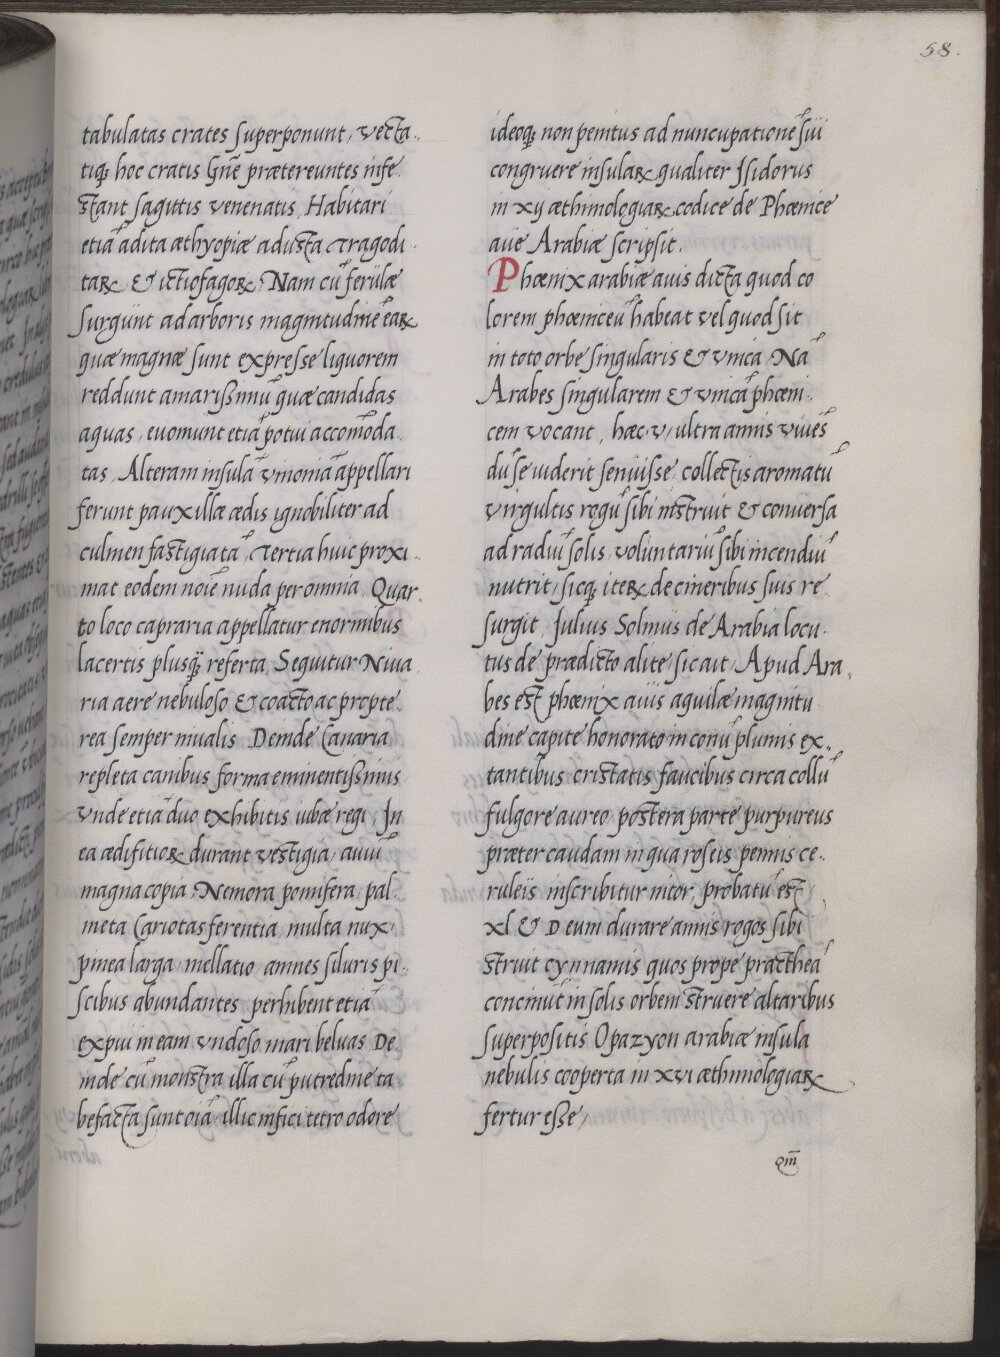 58.
tabulatas crates superponunt, vecta-
tiq; hoc cratis gñe prætereuntes infe-
stant sagittis venenatis. Habitari
etiā adita æthyopiæ adusta Tragodi-
taꝝ & ictiofagoꝝ. Nam cū ferulæ
surgunt ad arboris magnitudinē eaꝝ
quæ magnæ sunt expresse liquorem
reddunt amarißimū quæ candidas
aquas, euomunt etiā potui accomōda-
tas. Alteram insulā vinoniā appellari
ferunt pauxillæ ædis ignobiliter ad
culmen fastigiatā. Tertia huic proxi-
mat eodem noīe nuda per omnia. Quar-
to loco capraria appellatur enormibus
lacertis plusq̃ referta. Sequitur Niua
ria aere nebuloso & coacto ac propte-
rea semper niualis. Deinde Canaria
repleta canibus forma eminentißimis,
Vnde etiā duo exhibitis iubæ regi. In
ea ædifitioꝝ durant vestigia, auiū
magna copia, Nemora pomifera, pal-
meta Cariotas ferentia, multa nux
pinea larga, mellatio, amnes siluris pi-
scibus abundantes perhibent etiā
expui in eam vndoso mari beluas. De-
inde cū monstra illa cū putredine ta-
befacta sunt oīa illic infici tetro odore
ideoq; non penitus ad nuncupationē sui
congruere insulaꝝ qualiter Isidorus
in xij æthimologiaꝝ codice de Phœnice
aue Arabiæ scripsit.
Phœnix arabiæ auis dicta quod co
lorem phœniceū habeat vel quod sit
in toto orbe singularis & vnica. Nā
Arabes singularem & vnicā phœni-
cem vocant, hæc v, ultra annis viuēs
dū se uiderit senuisse, collectis aromatū
virgultis rogū sibi instruit & conuersa
ad radiū solis voluntariū sibi incendiū
nutrit, sicq; iteꝝ de cineribus suis re-
surgit. Julius Solinus de Arabia locu-
tus de prædicto alite sic ait. Apud Ara-
bes est phœnix auis aquilæ magnitu-
dine capite honorato in conū plumis ex-
tantibus cristatis faucibus circa collū
fulgore aureo postera parte purpureus
præter caudam in qua roseis pennis ce-
ruleis inscribitur nitor, probatū est
xl & D eum durare annis rogos sibi
struit cynnamis quos prope practheā
concinūt in solis orbem struere altaribus
superpositis Opazyon arabiæ insula
nebulis cooperta in xvi æthimologiaꝝ
fertur eße,
Qm̄